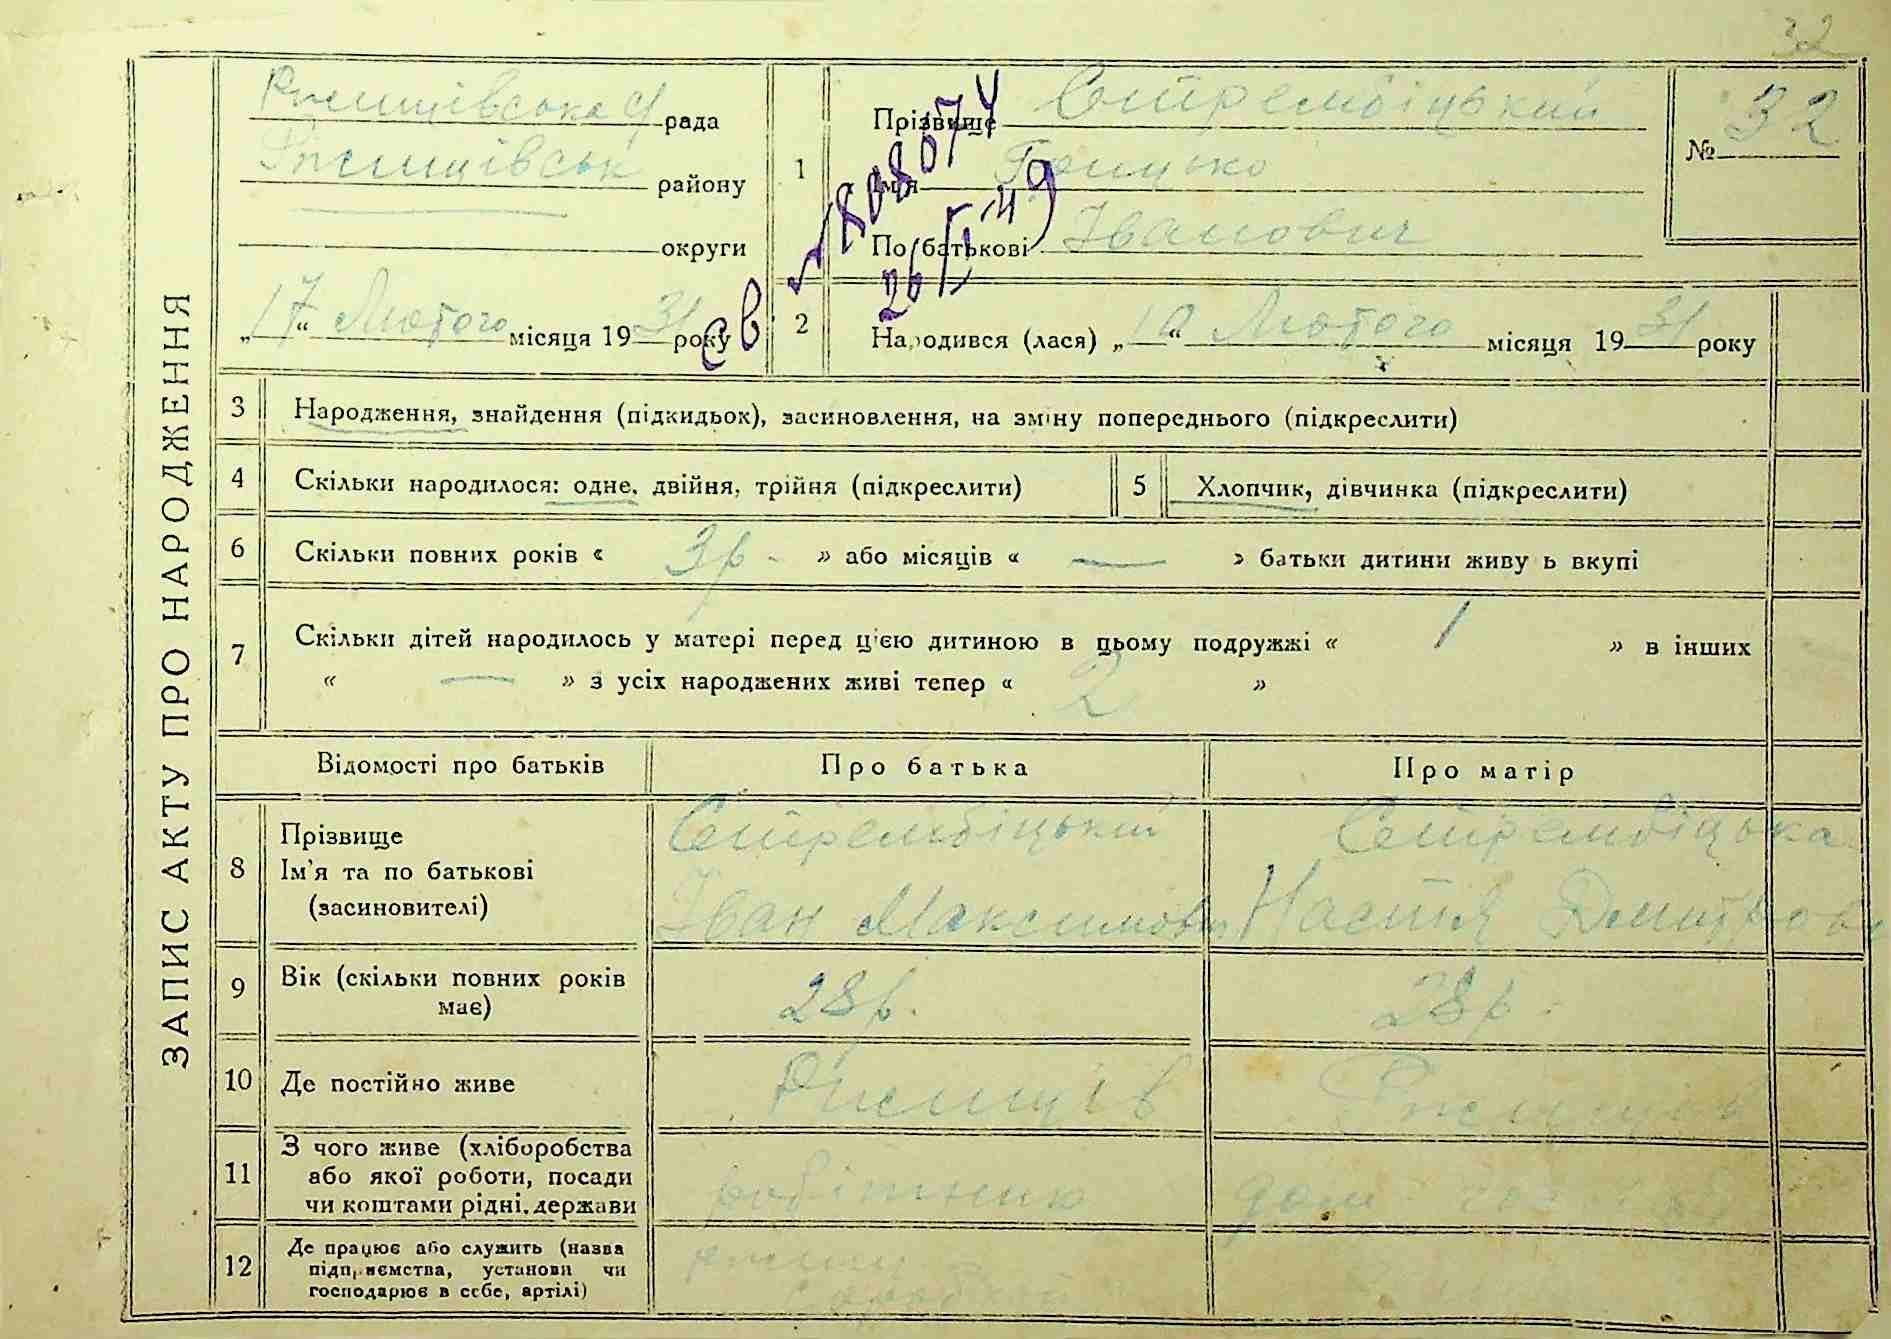 32
ЗАПИС АКТУ ПРО НАРОДЖЕННЯ
Ржищівська рада
Ржищівськ району
округи
„17“ Лютого місяця 1931 року
св
1
Прізвище Стрембіцький
Ім'я Грицько
По батькові Іванович
№ 32
26/I 49
2
Народився (лася) „10“ Лютого місяця 1931 року
3 Народження, знайдення (підкидьок), засиновлення, на зміну попереднього (підкреслити)
4 Скільки народилося: одне, двійня, трійня (підкреслити)
5 Хлопчик, дівчинка (підкреслити)
6 Скільки повних років « 3 р. » або місяців « — » батьки дитини живу ь вкупі
7 Скільки дітей народилось у матері перед цією дитиною в цьому подружжі « 1 » в інших
« — » з усіх народжених живі тепер « 2 »
Відомості про батьків Про батька Про матір
8 Прізвище
Ім'я та по батькові
(засиновителі)
Стрембіцький
Іван Максимович
Стрембіцька
Настя Дмитров
9 Вік (скільки повних років
має)
28 р. 28 р.
10 Де постійно живе Ржищів Ржищов
11 З чого живе (хліборобства
або якої роботи, посади
чи коштами рідні, держави
робітник дом
12 Де працює або служить (назва
підприємства, установи чи
господарює в себе, артілі)